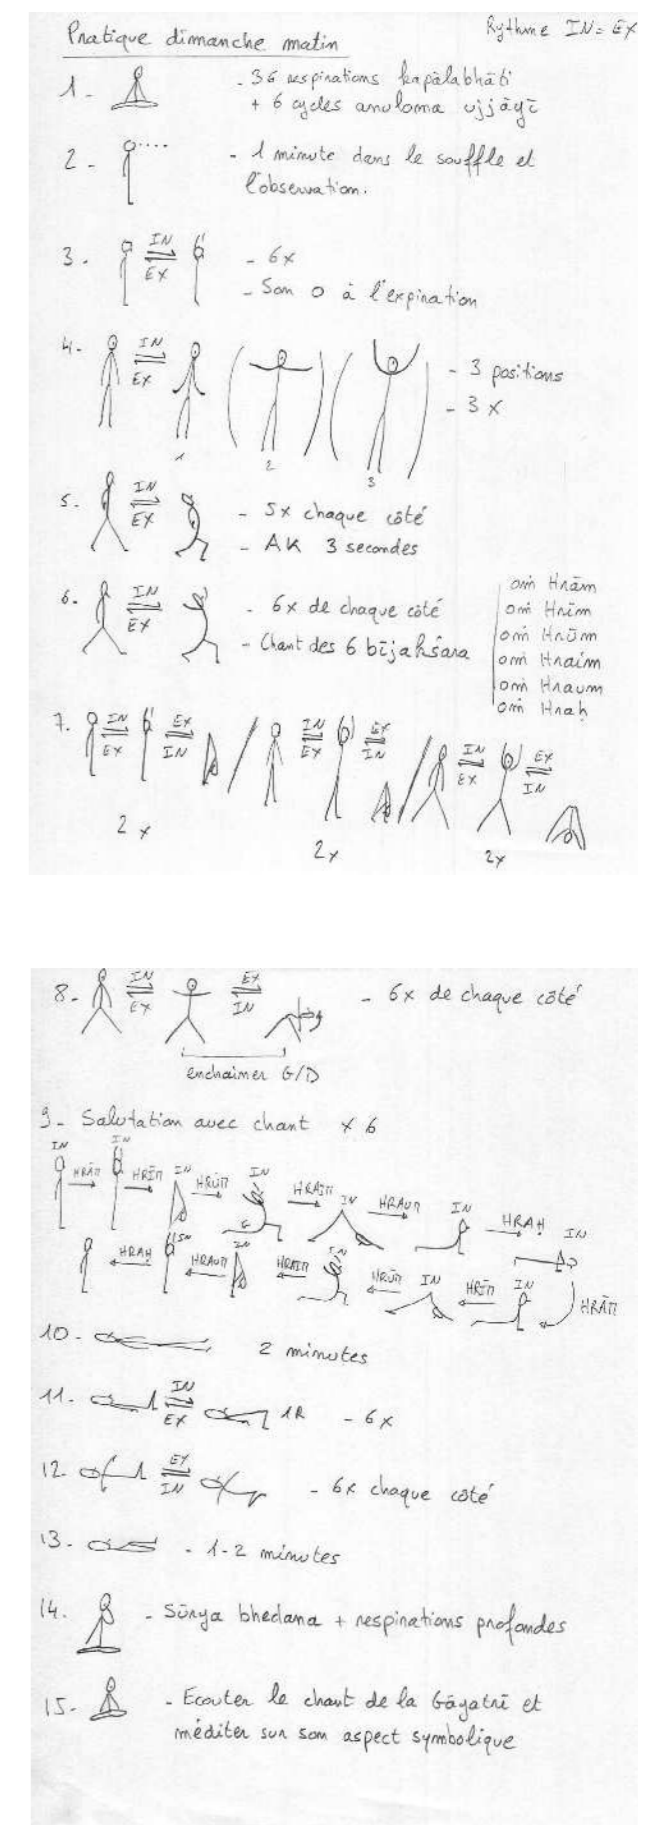 Pratique dimanche matin
Rythme IN = EX
1 - - 36 respirations kapālabhāti
+ 6 cycles anuloma ujjāyī
2 - - 1 minute dans le souffle et
l'observation.
3 - IN EX - 6x
- Son o à l'expiration
4 - IN EX - 3 positions
- 3 x
1 2 3
5. IN EX - 5x chaque côté
- AK 3 secondes
6. IN EX - 6x de chaque côté
- Chant des 6 bījakṣara
oṁ Hrām
oṁ Hrīm
oṁ Hrūm
oṁ Hraim
oṁ Hraum
oṁ Hraḥ
7. IN EX EX IN / IN EX EX IN / IN EX EX IN
2 x 2x 2x
8 - IN EX EX IN - 6x de chaque côté
enchaîner G/D
9 - Salutation avec chant x 6
IN HRĀṀ IN HRĪṀ IN HRŪṀ IN HRAIṀ IN HRAUṀ IN HRAḤ IN
G
HRAḤ IN HRAUṀ IN HRAIṀ IN HRŪṀ IN HRĪṀ IN HRĀṀ
10 - 2 minutes
11 - IN EX 1R - 6x
12. EX IN - 6x chaque côté
13 - - 1-2 minutes
14. - Sūrya bhedana + respirations profondes
15 - - Ecouter le chant de la Gāyatrī et
méditer sur son aspect symbolique